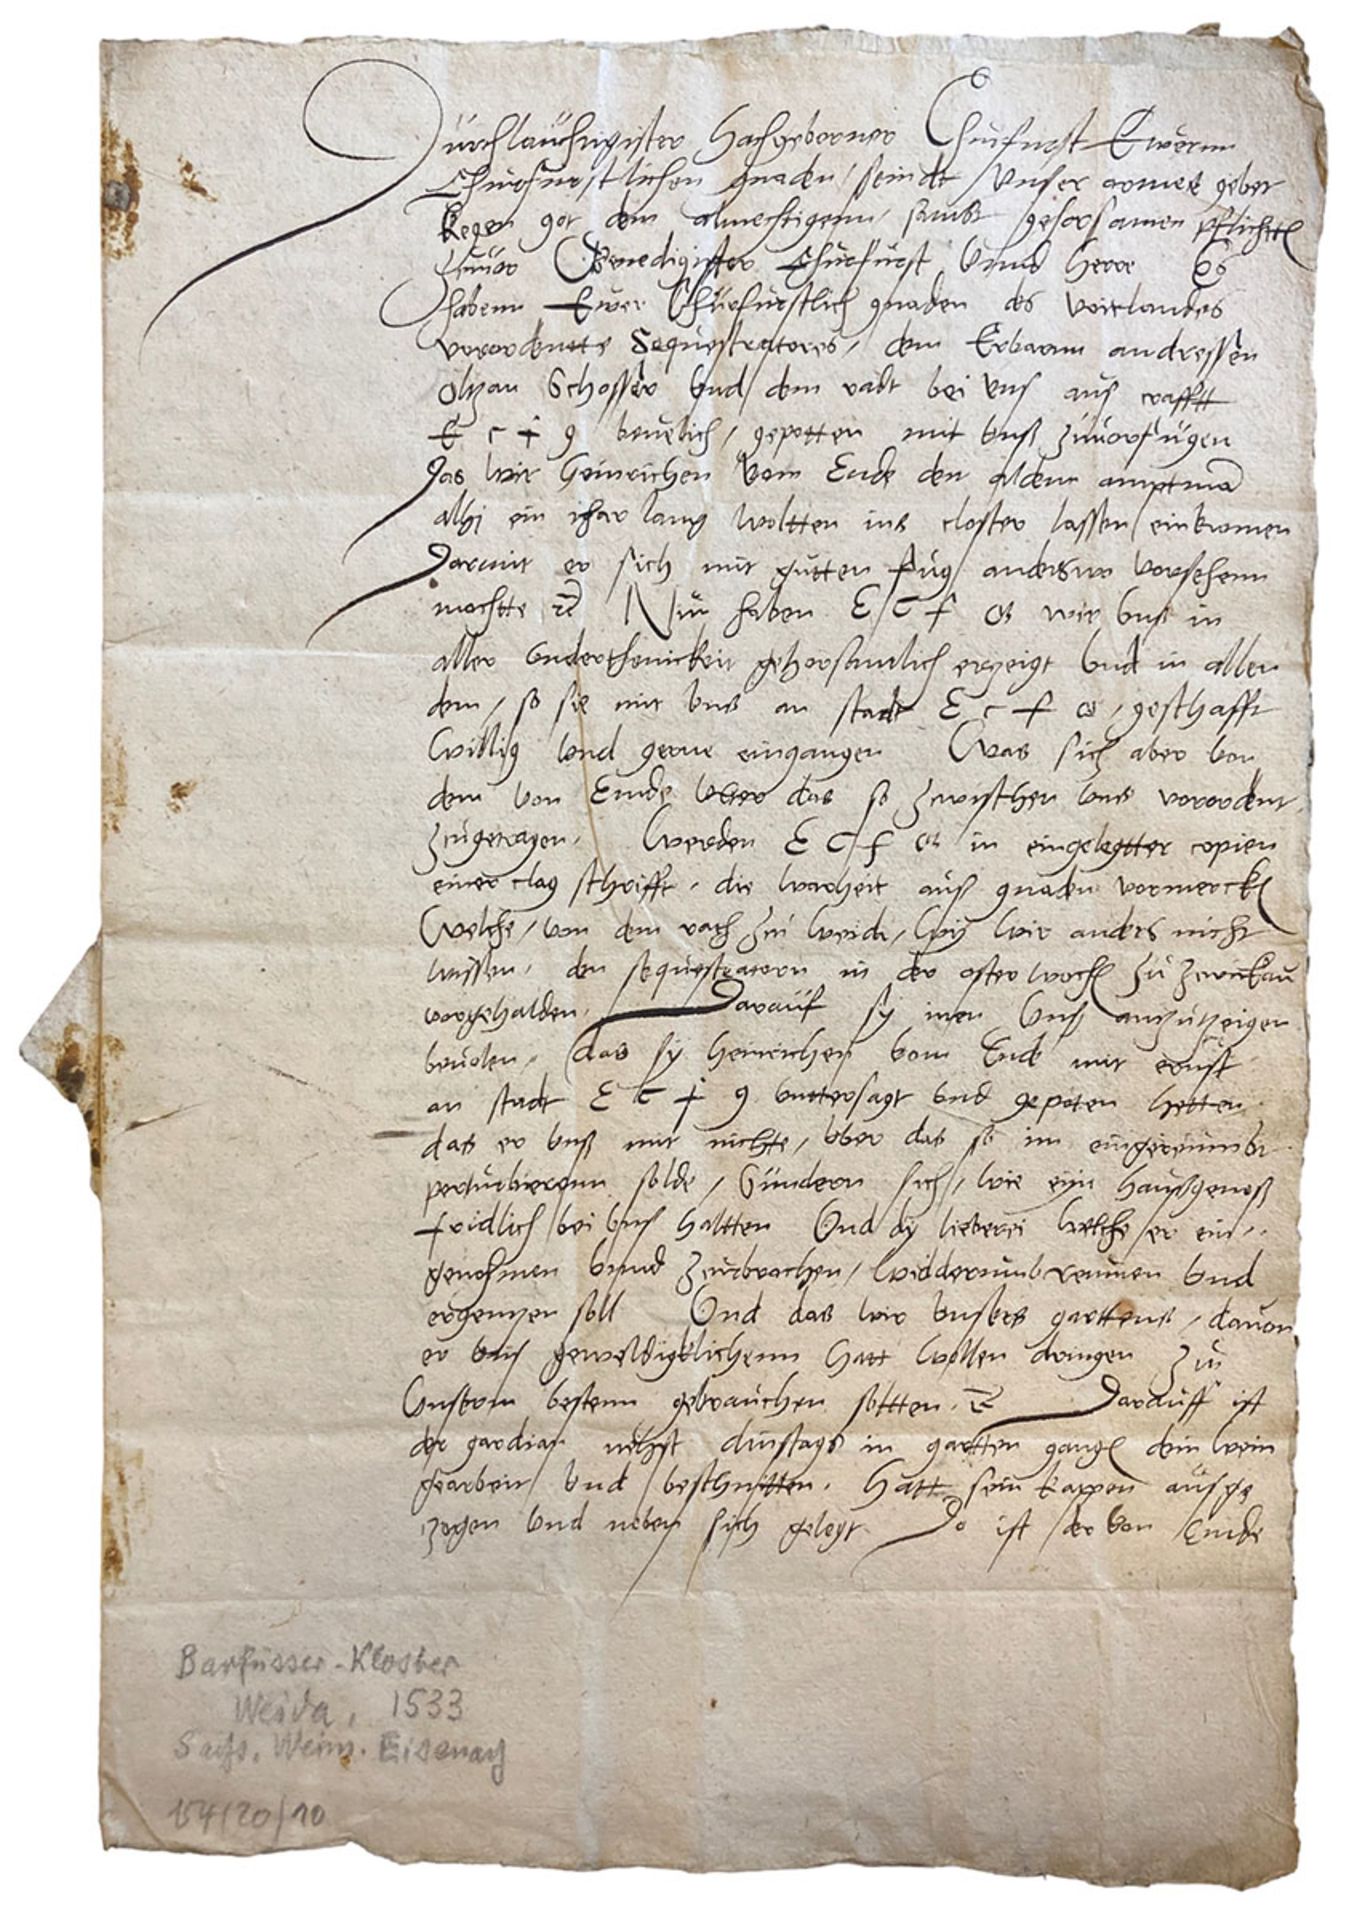 Durchlauchtigister Hochgeborner Churfurst Ewernn
Churfurstlichen gnaden / seindt / Unser armes gebet
kegen got dem almechtigenn / sambt gehorsamen pflichtē
zuuor Genedigister Churfurst Unnd Herre Es
habenn Ewer Churfurstlich gnaden des Voitlandes
verordentte Sequestratores / dem Erbarnn andressen
Schosser Und dem radt bei Uns aus crafft
E c f g beuelich / gepotten mit Unß zuuorfugen
Das Wir Heinrichen Vom Ende den aldenn amptmā
alhj ein ihar lang Woltten ins closter lassen einkomen
Darmit er sich mit gutten fug / anderswo Vorsehenn
mochtte Nun haben E C F G wir Unß in
aller Underthenickeit gehorsamlich erzeigt Und in allen
dem / so sie mit Uns an stadt E c f g / geschafft
Willig Und gerne eingangen Was sich aber Von
dem Von Ende Uber das so zwischen Uns verordent
zugetragen / Werden E C F G in eingelegtter copien
einer clag schrifft / die Warheit aus gnaden Vormerckē
Welche / Von dem rath zu Weida / Wij Wir anders nicht
Wissen / den sequestratorn in der osterwochē zu Zwickau
vorgehalden / Darauf sy inen Unß anzutzeigen
beuolen / das sy Heinrichen Vom Ende mit ernst
an stadt E C f g Unttersagt Und gepoten hetten
das er Unß mit nichte / Uber das so im eingereumbt
perturbierenn solde / Sundern sich / wie eyn Haußgenoß
fridlich bei Uns haltten Und dy lieberei Welche er ein
genohmen Unnd zurbrochen / Widderumb reumen Und
ergenzen soll Und das wir Unsers garttens / dauon
er Uns geweldigklichenn hatt Wollen dringen zu
Unserm bestenn gebrauchen soltten. Darauff ist
der gardian nehst dinstags in gartten gangē dem Wein
gearbeit / Und beschnitten. Hatt sein kappen ausge
zogen Und neben sich gelegt Do ist der Von Ende
Barfüsser-Kloster
Weida, 1533
Sachs. Weim. Eisenach
154/20/10